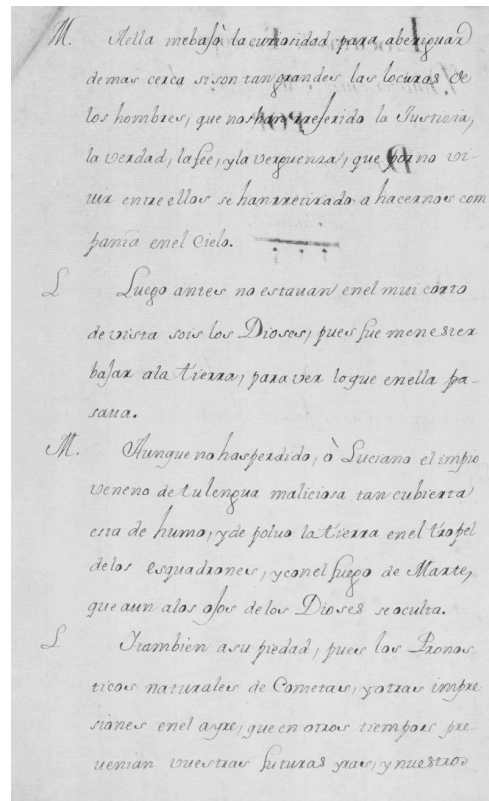 M. Aella mebajò la curiosidad para aberiguar
de mas cerca si son tan grandes las locuras de
los hombres, que nos han rreferido la Justicia,
la verdad, la feè, y la verguenza, que por no vi-
uir entre ellos se han rretirado a hacernos com
pania en el Cielo.
L Luego antes no estauan en el mui corto
de vista sois los Dioses, pues fue menester
bajar ala tierra, para ver lo que en ella pa-
saua.
M. Aunque no has perdido, ò Luciano el impio
veneno de tu lengua maliciosa tan cubierta
esta de humo, y de poluo la tierra en el tropel
de los esquadrones, y con el fuego de Marte,
que aun alos ojos de los Dioses se oculta.
L I tambien a su piedad, pues los Pronos-
ticos naturales de Cometas, y otras impre
siones en el ayre, que en otros tiempos pre
uenian vuestras futuras yras, y nuestros